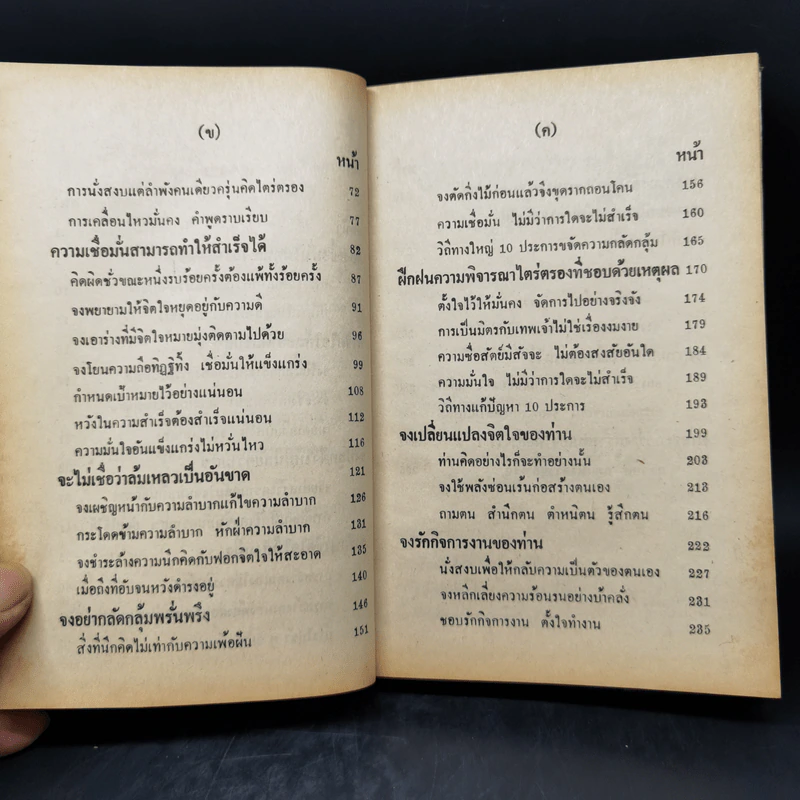 (ข)
หน้า
การนั่งสงบแต่ลำพังคนเดียวครุ่นคิดไตร่ตรอง 72
การเคลื่อนไหวมั่นคง คำพูดราบเรียบ 77
ความเชื่อมั่นสามารถทำให้สำเร็จได้ 82
คิดผิดชั่วขณะหนึ่งรบร้อยครั้งต้องแพ้ทั้งร้อยครั้ง 87
จงพยายามให้จิตใจหยุดอยู่กับความดี 91
จงเอาร่างที่มีจิตใจหมายมุ่งติดตามไปด้วย 96
จงโยนความถือทิฏฐิทิ้ง เชื่อมั่นให้แข็งแกร่ง 99
กำหนดเป้าหมายไว้อย่างแน่นอน 108
หวังในความสำเร็จต้องสำเร็จแน่นอน 112
ความมั่นใจอันแข็งแกร่งไม่หวั่นไหว 116
จะไม่เชื่อว่าล้มเหลวเป็นอันขาด 121
จงเผชิญหน้ากับความลำบากแก้ไขความลำบาก 126
กระโดดข้ามความลำบาก หักฝ่าความลำบาก 131
จงชำระล้างความนึกคิดกับฟอกจิตใจให้สะอาด 135
เมื่อถึงที่อับจนหวังดำรงอยู่ 140
จงอย่ากลัดกลุ้มพรั่นพรึง 146
สิ่งที่นึกคิดไม่เท่ากับความเพ้อฝัน 151
(ค)
หน้า
จงตัดกิ่งไม้ก่อนแล้วจึงขุดรากถอนโคน 156
ความเชื่อมั่น ไม่มีว่าการใดจะไม่สำเร็จ 160
วิถีทางใหญ่ 10 ประการขจัดความกลัดกลุ้ม 165
ฝึกฝนความพิจารณาไตร่ตรองที่ชอบด้วยเหตุผล 170
ตั้งใจไว้ให้มั่นคง จัดการไปอย่างจริงจัง 174
การเป็นมิตรกับเทพเจ้าไม่ใช่เรื่องงมงาย 179
ความซื่อสัตย์มีสัจจะ ไม่ต้องสงสัยอันใด 184
ความมั่นใจ ไม่มีว่าการใดจะไม่สำเร็จ 189
วิถีทางแก้ปัญหา 10 ประการ 193
จงเปลี่ยนแปลงจิตใจของท่าน 199
ท่านคิดอย่างไรก็จะทำอย่างนั้น 203
จงใช้พลังซ่อนเร้นก่อสร้างตนเอง 213
ถามตน สำนึกตน ตำหนิตน รู้สึกตน 216
จงรักกิจการงานของท่าน 222
นั่งสงบเพื่อให้กลับความเป็นตัวของตนเอง 227
จงหลีกเลี่ยงความร้อนรนอย่างบ้าคลั่ง 231
ชอบรักกิจการงาน ตั้งใจทำงาน 235